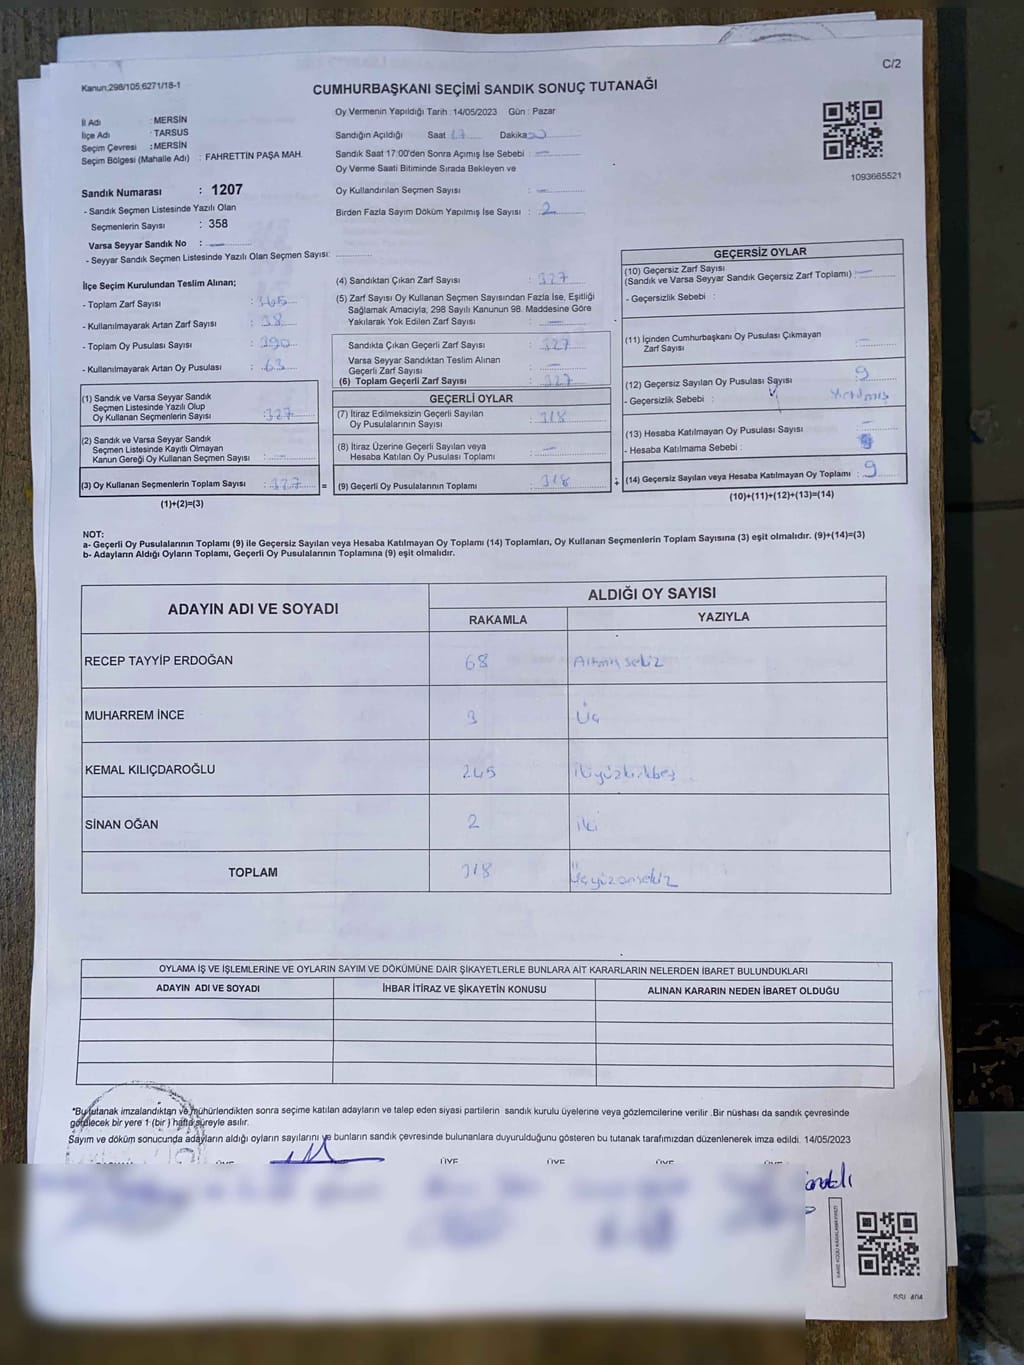 C/2
Kanun:298/105;6271/18-1
CUMHURBAŞKANI SEÇİMİ SANDIK SONUÇ TUTANAĞI
İl Adı : MERSİN
İlçe Adı : TARSUS
Seçim Çevresi : MERSİN
Seçim Bölgesi (Mahalle Adı) : FAHRETTİN PAŞA MAH.
Sandık Numarası : 1207
- Sandık Seçmen Listesinde Yazılı Olan
Seçmenlerin Sayısı : 358
Varsa Seyyar Sandık No : —
- Seyyar Sandık Seçmen Listesinde Yazılı Olan Seçmen Sayısı:
Oy Vermenin Yapıldığı Tarih : 14/05/2023 Gün : Pazar
Sandığın Açıldığı Saat 17 Dakika
Sandık Saat 17:00'den Sonra Açımış İse Sebebi : —
Oy Verme Saati Bitiminde Sırada Bekleyen ve
Oy Kullandırılan Seçmen Sayısı : —
Birden Fazla Sayım Döküm Yapılmış İse Sayısı : 2
1093665521
İlçe Seçim Kurulundan Teslim Alınan;
- Toplam Zarf Sayısı : 365
- Kullanılmayarak Artan Zarf Sayısı : 38
- Toplam Oy Pusulası Sayısı : 390
- Kullanılmayarak Artan Oy Pusulası : 63
(1) Sandık ve Varsa Seyyar Sandık
Seçmen Listesinde Yazılı Olup
Oy Kullanan Seçmenlerin Sayısı : 327
(2) Sandık ve Varsa Seyyar Sandık
Seçmen Listesinde Kayıtlı Olmayan
Kanun Gereği Oy Kullanan Seçmen Sayısı : —
(3) Oy Kullanan Seçmenlerin Toplam Sayısı : 327 =
(1)+(2)=(3)
(4) Sandıktan Çıkan Zarf Sayısı : 327
(5) Zarf Sayısı Oy Kullanan Seçmen Sayısından Fazla İse, Eşitliği
Sağlamak Amacıyla, 298 Sayılı Kanunun 98. Maddesine Göre
Yakılarak Yok Edilen Zarf Sayısı : —
Sandıkta Çıkan Geçerli Zarf Sayısı : 327
Varsa Seyyar Sandıktan Teslim Alınan
Geçerli Zarf Sayısı : —
(6) Toplam Geçerli Zarf Sayısı : 327
GEÇERLİ OYLAR
(7) İtiraz Edilmeksizin Geçerli Sayılan
Oy Pusulalarının Sayısı : 318
(8) İtiraz Üzerine Geçerli Sayılan veya
Hesaba Katılan Oy Pusulası Toplamı : —
(9) Geçerli Oy Pusulalarının Toplamı : 318 +
GEÇERSİZ OYLAR
(10) Geçersiz Zarf Sayısı
(Sandık ve Varsa Seyyar Sandık Geçersiz Zarf Toplamı) : —
- Geçersizlik Sebebi :
(11) İçinden Cumhurbaşkanı Oy Pusulası Çıkmayan
Zarf Sayısı : —
(12) Geçersiz Sayılan Oy Pusulası Sayısı : 9
- Geçersizlik Sebebi : Yırtılmış
(13) Hesaba Katılmayan Oy Pusulası Sayısı : —
- Hesaba Katılmama Sebebi :
(14) Geçersiz Sayılan veya Hesaba Katılmayan Oy Toplamı : 9
(10)+(11)+(12)+(13)=(14)
NOT:
a- Geçerli Oy Pusulalarının Toplamı (9) ile Geçersiz Sayılan veya Hesaba Katılmayan Oy Toplamı (14) Toplamları, Oy Kullanan Seçmenlerin Toplam Sayısına (3) eşit olmalıdır. (9)+(14)=(3)
b- Adayların Aldığı Oyların Toplamı, Geçerli Oy Pusulalarının Toplamına (9) eşit olmalıdır.
ADAYIN ADI VE SOYADI
ALDIĞI OY SAYISI
RAKAMLA YAZIYLA
RECEP TAYYİP ERDOĞAN 68 Altmış sekiz
MUHARREM İNCE 3 Üç
KEMAL KILIÇDAROĞLU 245 ikiyüzkırkbeş
SİNAN OĞAN 2 iki
TOPLAM 318 Üçyüzonsekiz
OYLAMA İŞ VE İŞLEMLERİNE VE OYLARIN SAYIM VE DÖKÜMÜNE DAİR ŞİKAYETLERLE BUNLARA AİT KARARLARIN NELERDEN İBARET BULUNDUKLARI
ADAYIN ADI VE SOYADI İHBAR İTİRAZ VE ŞİKAYETİN KONUSU ALINAN KARARIN NEDEN İBARET OLDUĞU
*Bu tutanak imzalandıktan ve mühürlendikten sonra seçime katılan adayların ve talep eden siyasi partilerin sandık kurulu üyelerine veya gözlemcilerine verilir .Bir nüshası da sandık çevresinde
görülecek bir yere 1 (bir ) hafta süreyle asılır.
Sayım ve döküm sonucunda adayların aldığı oyların sayılarını ve bunların sandık çevresinde bulunanlara duyurulduğunu gösteren bu tutanak tarafımızdan düzenlenerek imza edildi. 14/05/2023
ÜYE ÜYE ÜYE ÜYE ÜYE